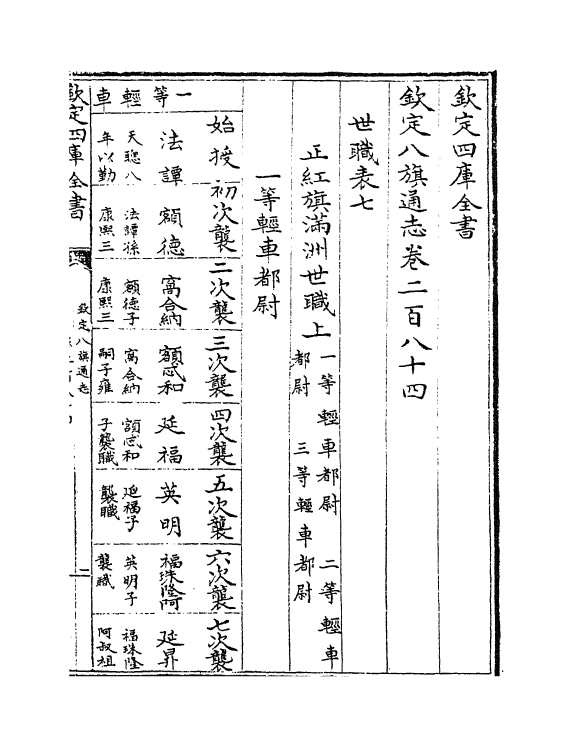 欽定四庫全書
欽定八旗通志卷二百八十四
世職表七
正紅旗滿洲世職上 一等輕車都尉 二等輕車
都尉 三等輕車都尉
一等輕車都尉
始授 初次襲 二次襲 三次襲 四次襲 五次襲 六次襲 七次襲
法譚 額德 窩合納 額忒和 延福 英明 福珠隆阿 延昇
天聰八 法譚孫 額德子 窩合納 額忒和 延福子 英明子 福珠隆
一等輕車 年以勤 康熙三 康熙三 嗣子雍 子襲職 襲職 襲職 阿叔祖
欽定四庫全書
欽定八旗通志
二